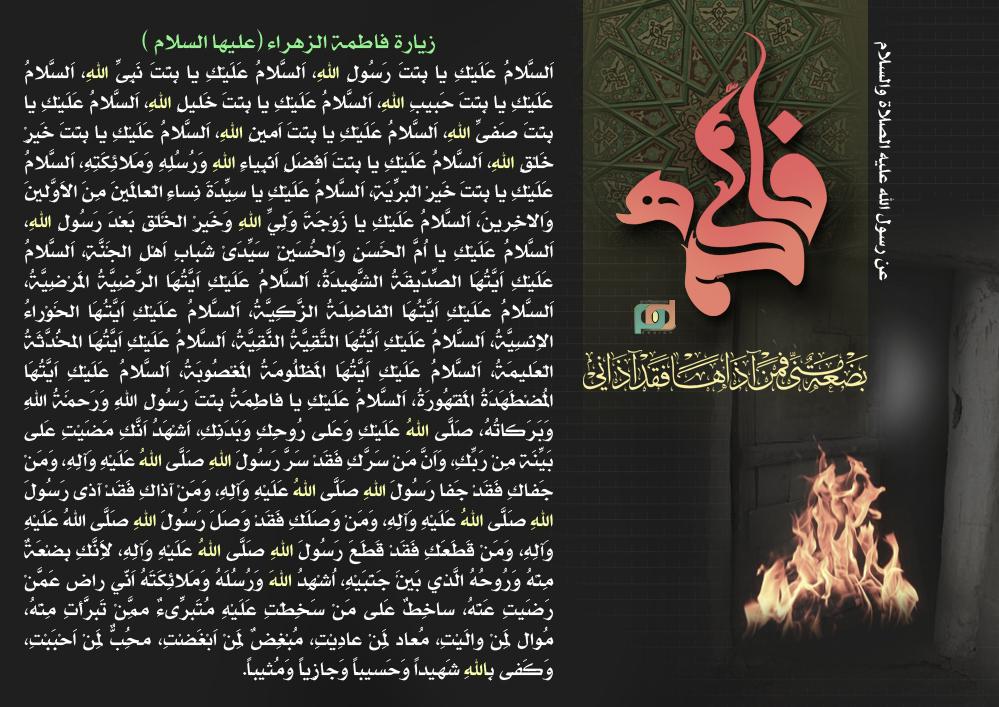 زيارة فاطمة الزهراء (عليها السلام )
اَلسَّلامُ عَلَيْكِ يا بِنْتَ رَسُولِ اللهِ، اَلسَّلامُ عَلَيْكِ يا بِنْتَ نَبِيِّ اللهِ، اَلسَّلامُ
عَلَيْكِ يا بِنْتَ حَبيبِ اللهِ، اَلسَّلامُ عَلَيْكِ يا بِنْتَ خَليلِ اللهِ، اَلسَّلامُ عَلَيْكِ يا
بِنْتَ صَفيِّ اللهِ، اَلسَّلامُ عَلَيْكِ يا بِنْتَ اَمينِ اللهِ، اَلسَّلامُ عَلَيْكِ يا بِنْتَ خَيْرِ
خَلْقِ اللهِ، اَلسَّلامُ عَلَيْكِ يا بِنْتَ اَفْضَلِ اَنْبِياءِ اللهِ وَرُسُلِهِ وَمَلائِكَتِهِ، اَلسَّلامُ
عَلَيْكِ يا بِنْتَ خَيْرِ الْبَرِيَّةِ، اَلسَّلامُ عَلَيْكِ يا سِيِّدَةَ نِساءِ الْعالَمينَ مِنَ الاَْوَّلينَ
وَالاْخِرينَ، اَلسَّلامُ عَلَيْكِ يا زَوْجَةَ وَلِيِّ اللهِ وَخَيْرِ الْخَلْقِ بَعْدَ رَسُولِ اللهِ،
اَلسَّلامُ عَلَيْكِ يا اُمَّ الْحَسَنِ وَالْحُسَيْنِ سَيِّدَىْ شَبابِ اَهْلِ الْجَنَّةِ، اَلسَّلامُ
عَلَيْكِ اَيَّتُهَا الصِّدّيقَةُ الشَّهيدَةُ، اَلسَّلامُ عَلَيْكِ اَيَّتُهَا الرَّضِيَّةُ الْمَرْضِيَّةُ،
اَلسَّلامُ عَلَيْكِ اَيَّتُهَا الْفاضِلَةُ الزَّكِيَّةُ، اَلسَّلامُ عَلَيْكِ اَيَّتُهَا الْحَوْراءُ
الاِنْسِيَّةُ، اَلسَّلامُ عَلَيْكِ اَيَّتُهَا التَّقِيَّةُ النَّقِيَّةُ، اَلسَّلامُ عَلَيْكِ اَيَّتُهَا الْمُحَدَّثَةُ
الْعَليمَةُ، اَلسَّلامُ عَلَيْكِ اَيَّتُهَا الْمَظْلُومَةُ الْمَغْصُوبَةُ، اَلسَّلامُ عَلَيْكِ اَيَّتُهَا
الْمُضْطَهَدَةُ الْمَقْهُورَةُ، اَلسَّلامُ عَلَيْكِ يا فاطِمَةُ بِنْتَ رَسُولِ اللهِ وَرَحْمَةُ اللهِ
وَبَرَكاتُهُ، صَلَّى اللهُ عَلَيْكِ وَعَلى رُوحِكِ وَبَدَنِكِ، اَشْهَدُ اَنَّكِ مَضَيْتِ عَلى
بَيِّنَة مِنْ رَبِّكِ، وَاَنَّ مَنْ سَرَّكِ فَقَدْ سَرَّ رَسُولَ اللهِ صَلَّى اللهُ عَلَيْهِ وَآلِهِ، وَمَنْ
جَفاكِ فَقَدْ جَفا رَسُولَ اللهِ صَلَّى اللهُ عَلَيْهِ وَآلِهِ، وَمَنْ آذاكِ فَقَدْ آذى رَسُولَ
اللهِ صَلَّى اللهُ عَلَيْهِ وَآلِهِ، وَمَنْ وَصَلَكِ فَقَدْ وَصَلَ رَسُولَ اللهِ صَلَّى اللهُ عَلَيْهِ
وَآلِهِ، وَمَنْ قَطَعَكِ فَقَدْ قَطَعَ رَسُولَ اللهِ صَلَّى اللهُ عَلَيْهِ وَآلِهِ، لاَِنَّكِ بِضْعَةٌ
مِنْهُ وَرُوحُهُ الَّذي بَيْنَ جَنْبَيْهِ، اُشْهِدُ اللهَ وَرُسُلَهُ وَمَلائِكَتَهُ اَنّي راض عَمَّنْ
رَضَيتِ عَنْهُ، ساخِطٌ عَلى مَنْ سَخَطْتِ عَلَيْهِ مُتَبَرِّىءٌ مِمَّنْ تَبَرَّأتِ مِنْهُ،
مُوال لِمَنْ والَيْتِ، مُعاد لِمَنْ عادَيْتِ، مُبْغِضٌ لِمَنْ اَبْغَضْتِ، مُحِبٌّ لِمَنْ اَحْبَبْتِ،
وَكَفى بِاللهِ شَهيداً وَحَسيباً وَجازِياً وَمُثيباً.
عن رسول الله عليه الصلاة والسلام
فاطمة
بَضْعَةٌ مِنِّي فَمَنْ آذَاهَا فَقَدْ آذَانِي